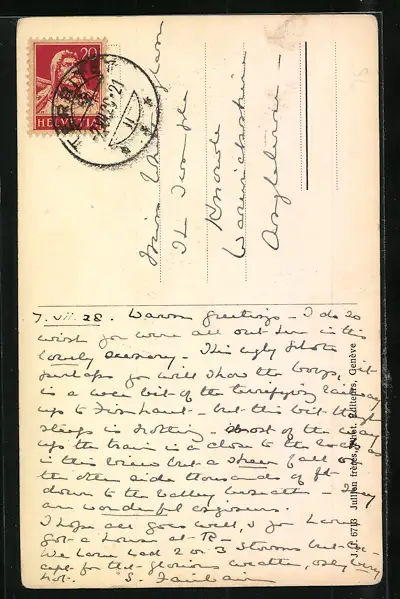 20
HELVETIA
Miss
The Temple
Knowle
Warwickshire
Angleterre
7.vii.28. Warm greetings - I do so
wish you were all out here in this
lovely scenery. This ugly photo
perhaps you will show the boys, it
is a wee bit of the terrifying railway
up to Finhaut - but this bit though
steep is nothing - most of the way
up the train is close to the rocks as
in this view but a sheer fall on
the other side thousands of ft
down to the valley beneath - They
are wonderful engineers.
I hope all goes well, & you have
got a house at R-
We have had 2 or 3 storms but ex-
cept for that - glorious weather, only very
hot. S. Fairbairn
J. J. 6713 Jullien frères, Phot. Editeurs, Genève